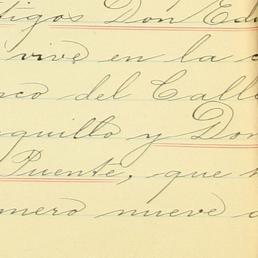 tigos Don Edu
vive en la c
nco del Calle
quillo y Don
Puente, que v
úmero nueve d